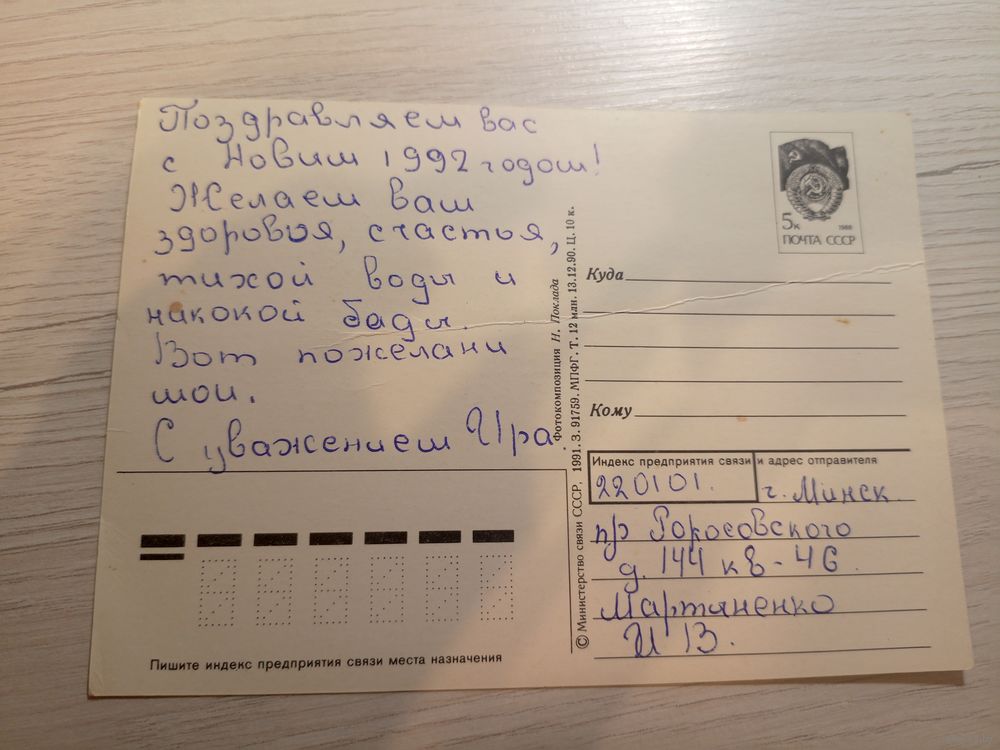 Поздравляем вас
с Новим 1992 годом!
Желаем вам
здоровья, счастья,
тихой воды и
никокой бады.
Вот пожелани
мои.
С уважением Ира.
Пишите индекс предприятия связи места назначения
© Министерство связи СССР, 1991. З. 91759. МПФГ. Т. 12 мли. 13.12.90. Ц. 10 к.
Фотокомпозиция Н. Поклада
5к 1988
ПОЧТА СССР
Куда
Кому
Индекс предприятия связи и адрес отправителя
220101. г. Минск
пр Роросовского
д. 144 кв-46.
Мартиненко
И В.